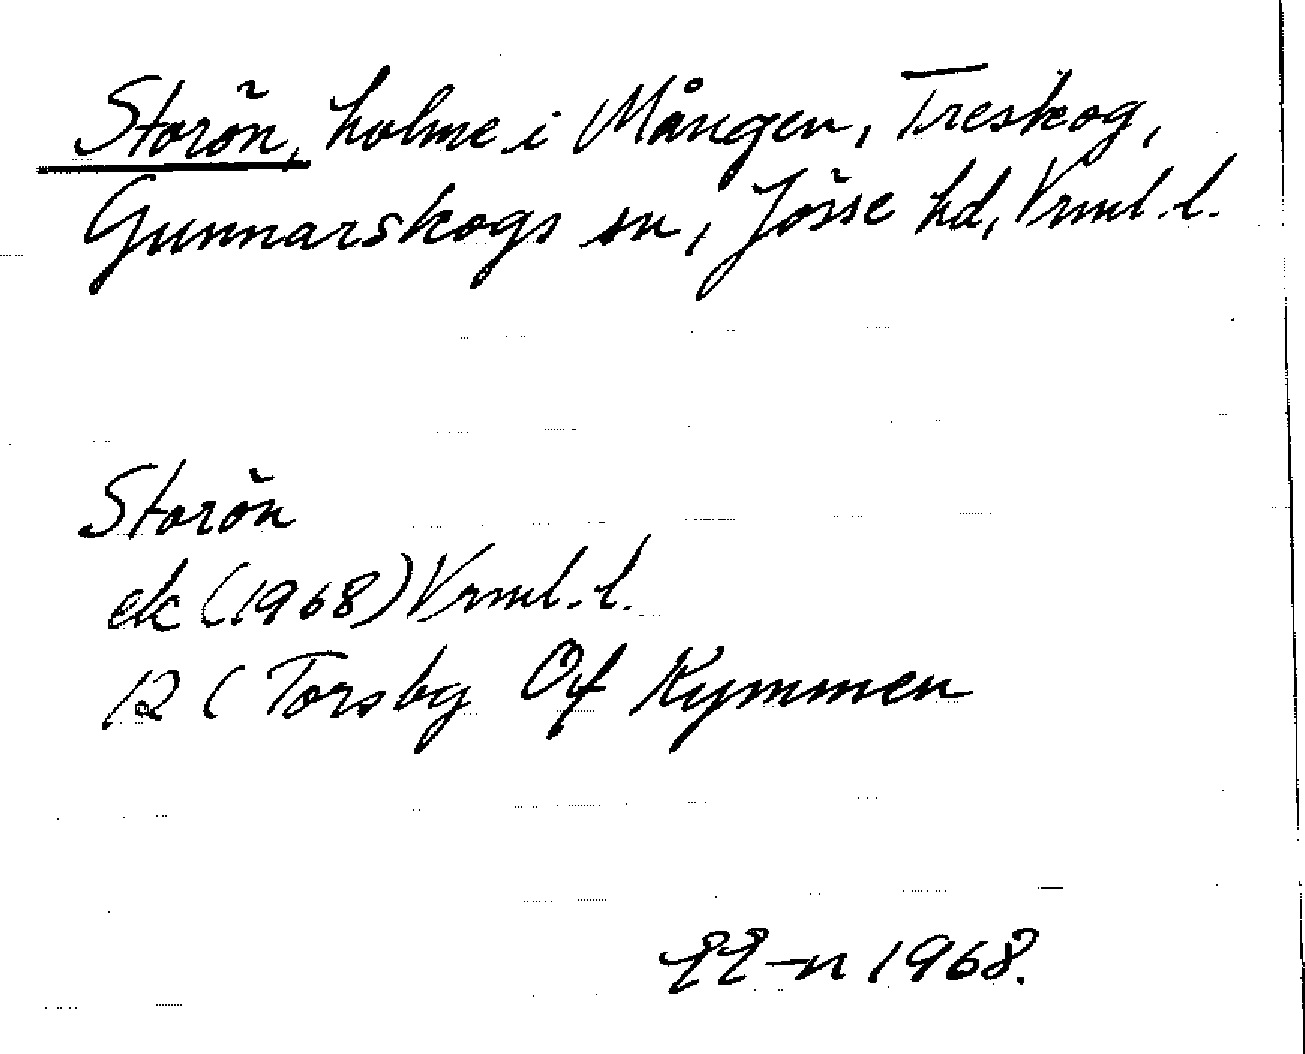 Storön, holme i Mången, Treskog,
Gunnarskogs sn, Jösse hd, Vrml. l.
Storön
ek (1968) Vrml. l.
12 C Torsby Of Kymmen
EE-n 1968.